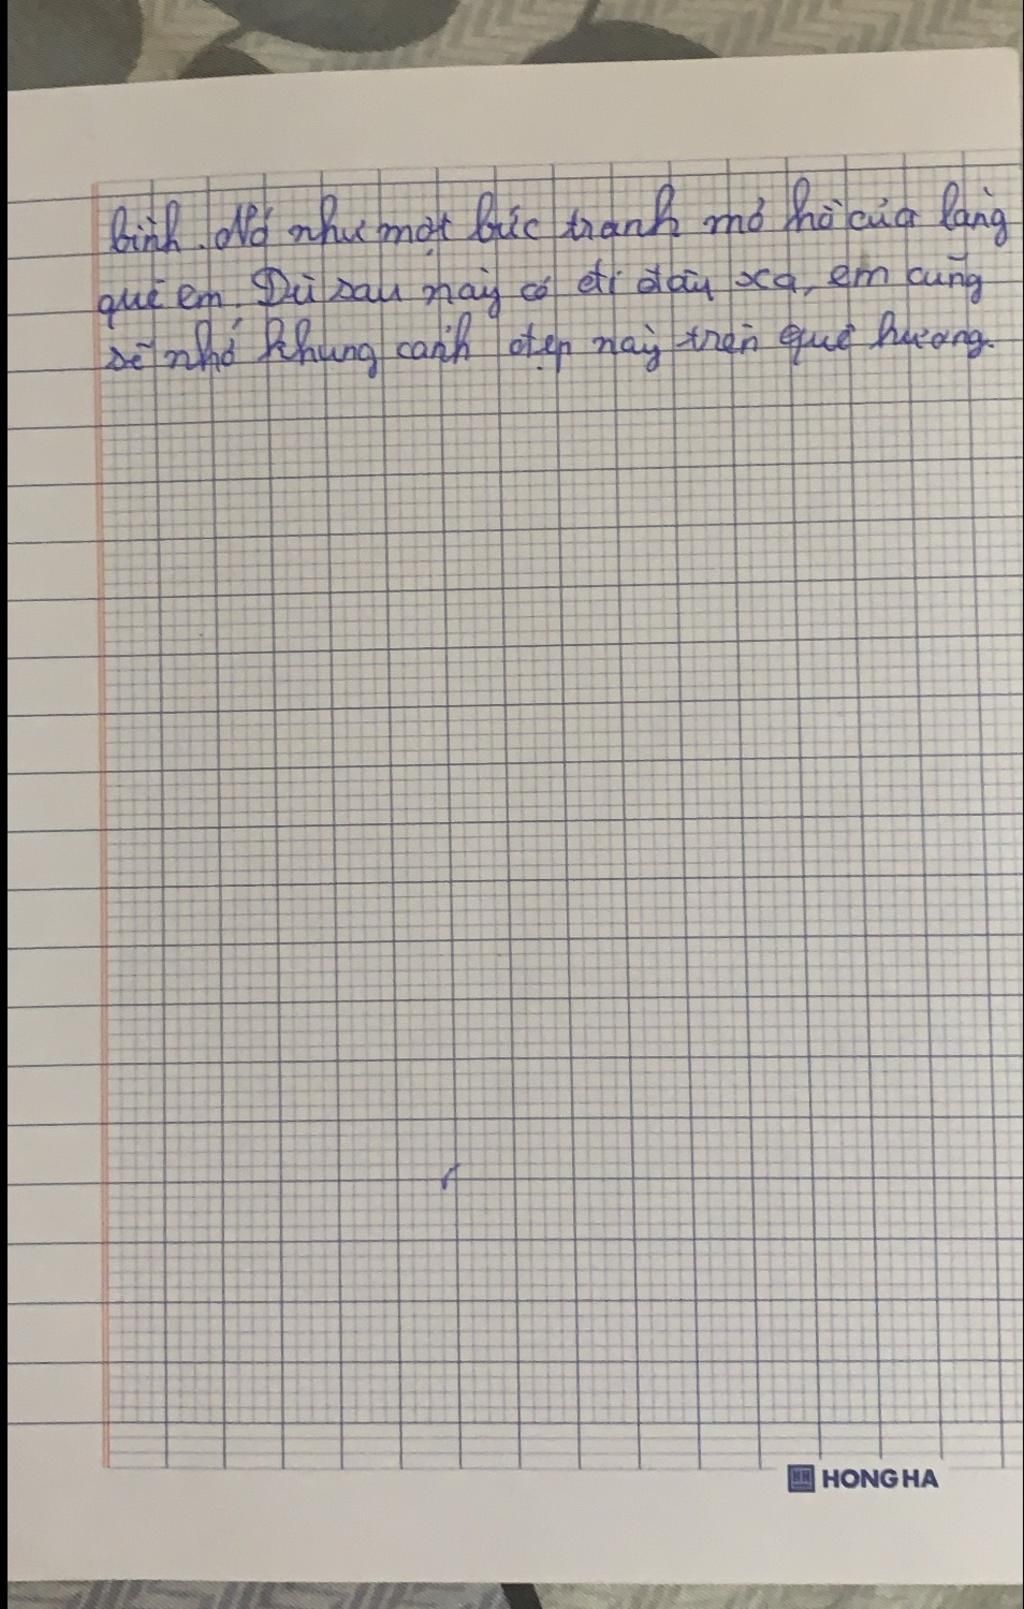 bình. Nó như một bức tranh mờ hồ của làng
quê em. Dù sau này có đi đâu xa, em cũng
sẽ nhớ khung cảnh đẹp này trên quê hương.
HONG HA